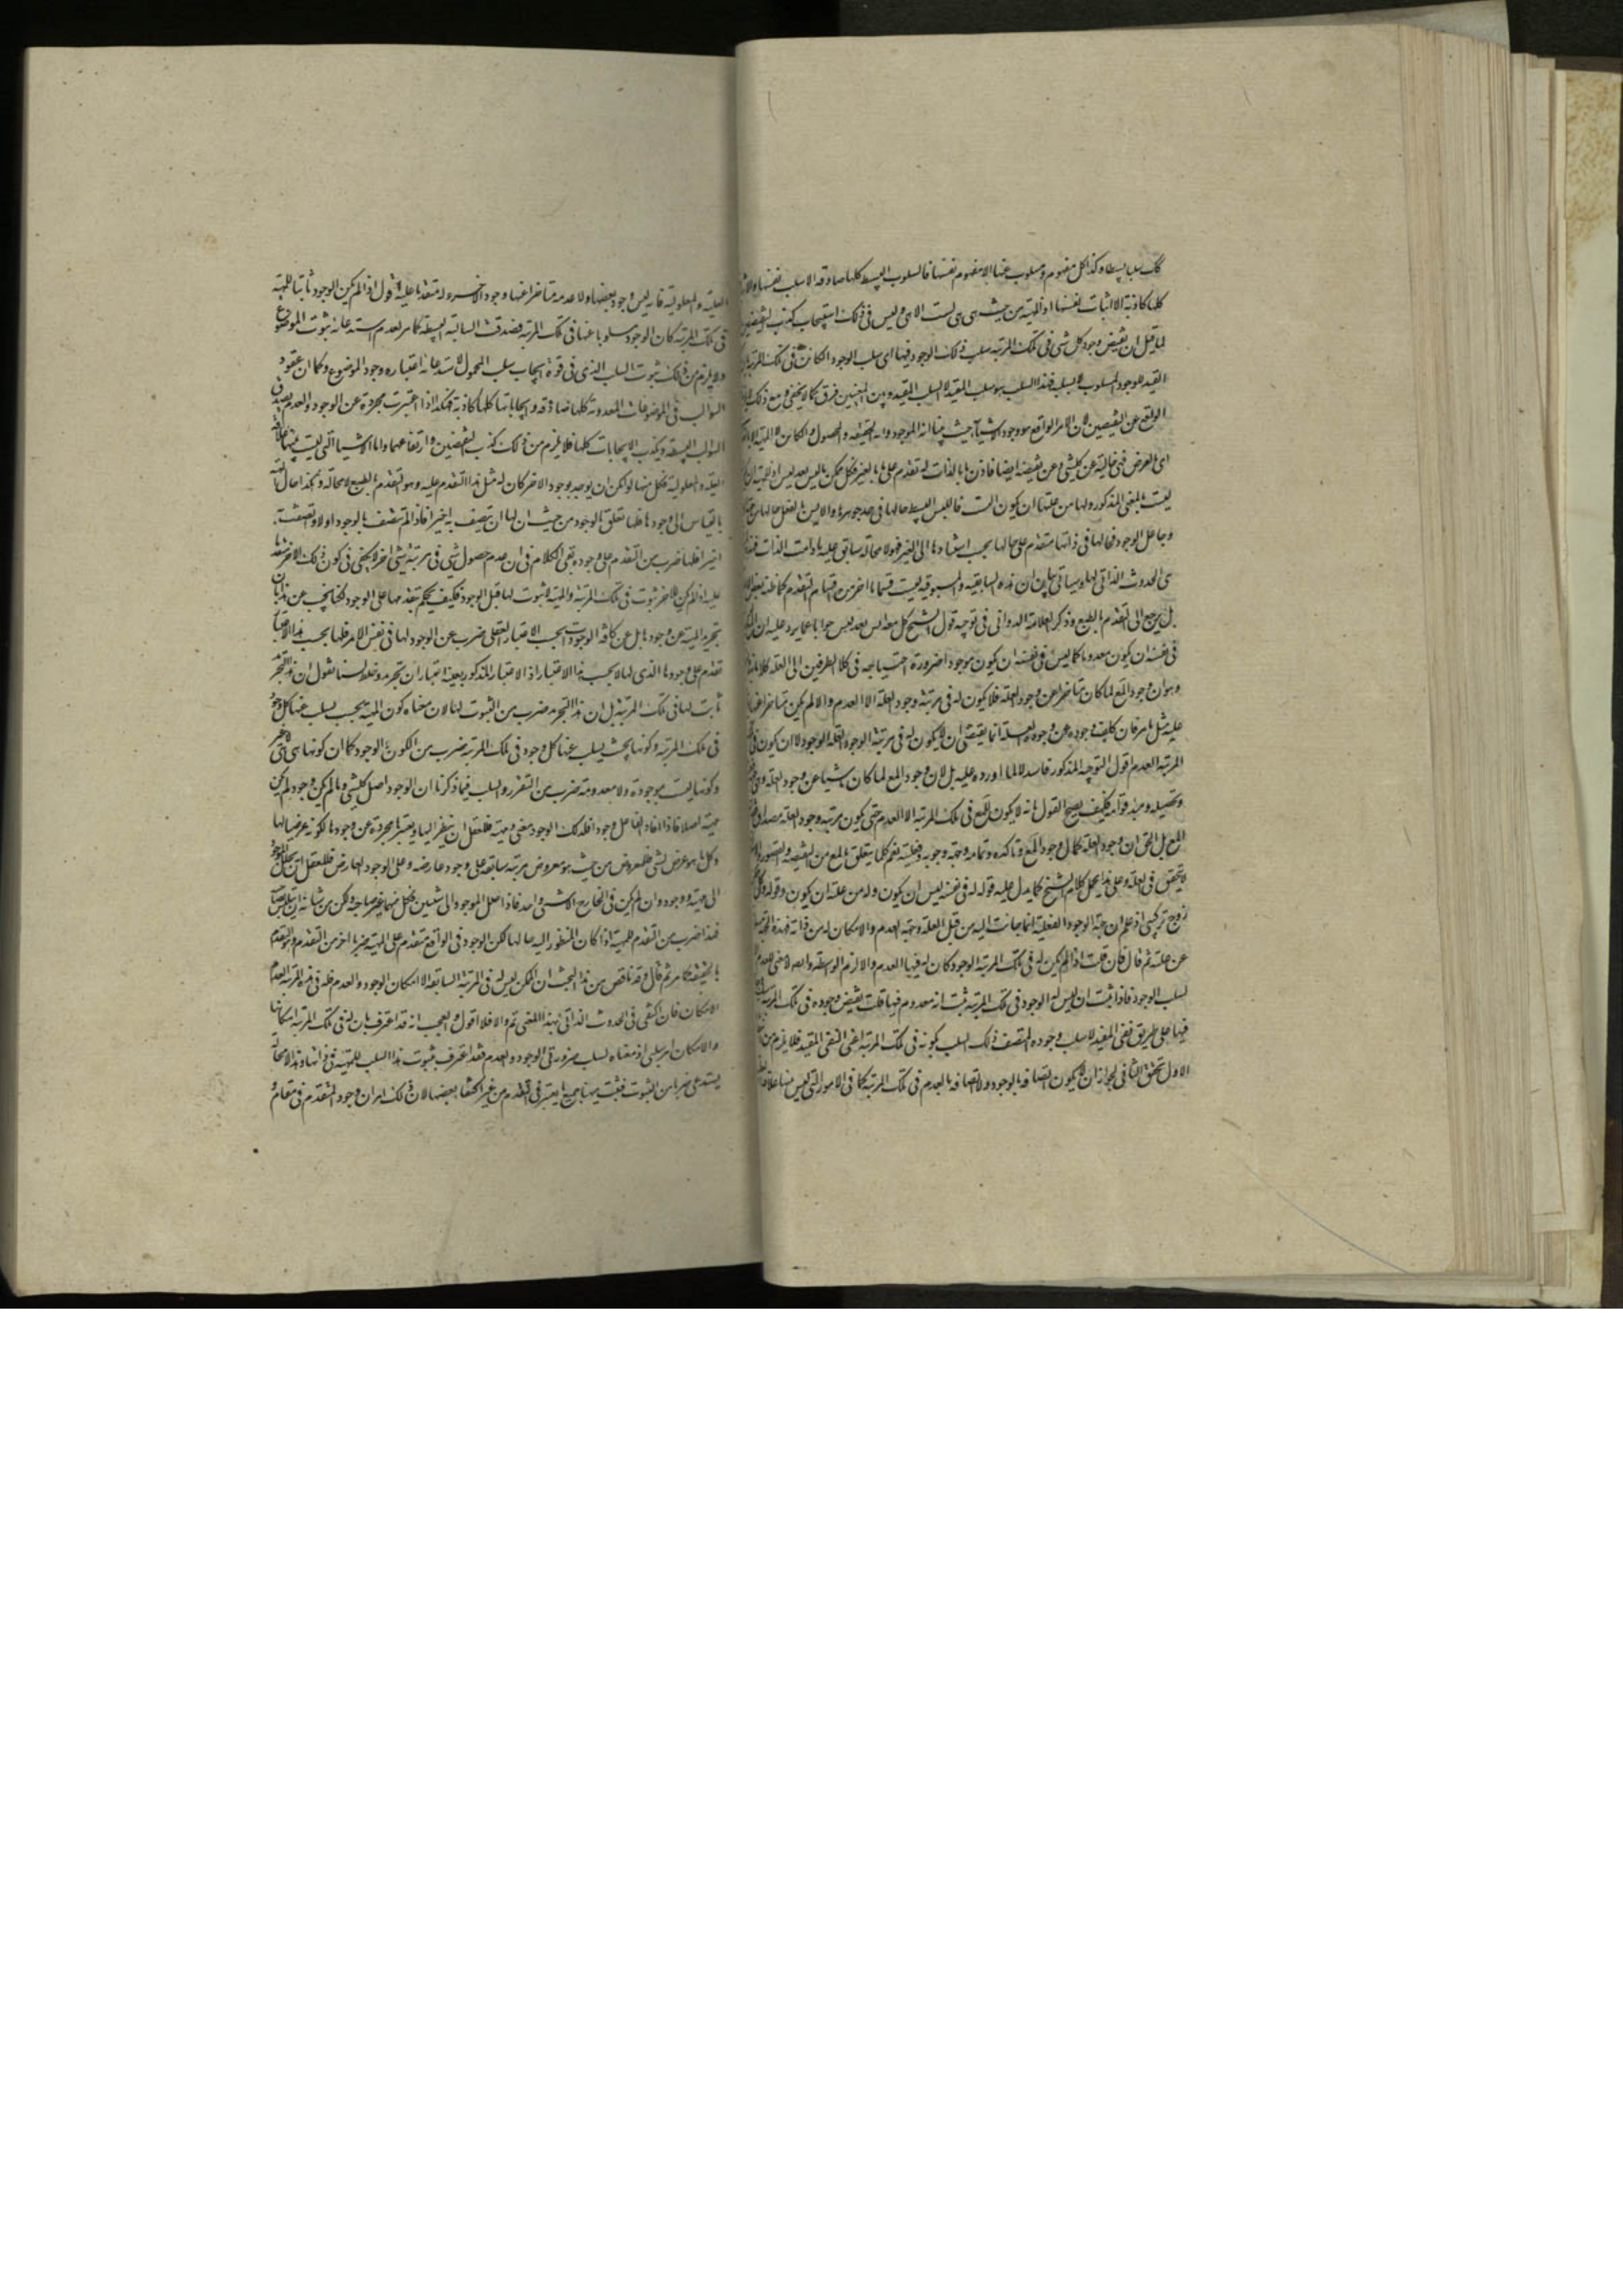 كك سلب بسيط وكذا كل مفهوم مفهوم مسلوب عنها الا مفهوم نفسها فالسلوب البسيطة كلها صادقة الا سلب نفسها
كلها كاذبة الا اثبات نفسها اذ المهية من حيث هي هي ليست الا هي وليس في ذلك استيجاب كذب النقيضين
لما قيل ان نقيض وجود كل شي في تلك المرتبة سلب ذلك الوجود فيها اي سلب الوجود الكائن في تلك المرتبة بان
القيد للوجود المسلوب لا للسلب فهذا السلب هو سلب المقيد لا السلب المقيد وبين المعنيين فرق كما لا يخفى ومع ذلك
الواقع عن النقيضين لان الامر الواقع هو وجود الاشيآء حيث بينا انه الموجود وله الحقيقة والحصول
اي بالعرض فهي خالية عن كل شي وعن نقيضه ايضا فاذن ما بالذات له تقدم على ما بالغير فكل ممكن ايس بعد ليس
ليست بالمعنى المذكور ولها من علتها ان يكون ايست فالليس البسيط حالها في حد جوهرها والايس بالفعل حالها من جهة
وجاعل الوجود فحالها في ذاتها متقدم على حالها بحسب استنادها الى الغير فهو لا محالة سابق عليه ما دامت الذات
هي الحدوث الذاتي لها وسياتي بيان ان هذه السابقية والمسبوقية ليست قسما اخر من اقسام التقدم كما ظنه بعض
بل يرجع الى التقدم بالطبع وذكر العلامة الدواني في توجيه قول الشيخ كل معلول ايس بعد ليس جوابا عما يرد عليه ان
في نفسه ان يكون معدوما كما ليس في نفسه ان يكون موجودا ضرورة احتياجه في كلا الطرفين الى العلة كلاما
وهو ان وجود المع لما كان متاخرا عن وجود العلة فلا يكون له في مرتبة وجود العلة الا العدم والا لم يكن متاخرا عنها
عليه مثل ما مر فان تخلف وجوده عن وجود العلة انما يقتضي ان لا يكون له في مرتبة الوجود العلة الوجود لا ان يكون له في
المرتبة العدم اقول التوجيه المذكور فاسد لا لما اورده عليه بل لان وجود المع لما كان ناشيا عن وجود العلة
وتحصيله ومبدء قوامه فكيف يصح القول بانه لا يكون للمع في تلك المرتبة الا العدم حتى يكون مرتبة وجود العلة مصداق
المع بل الحق ان وجود العلة كمال وجود المع وتاكده وتمامه وجهة وجوبه وفعليته نعم كلما يتعلق بالمع من النقيصة والقصور
لا يتحقق في العلة وعلى هذا يحمل كلام الشيخ كما يدل عليه قوله له في نفسه ليس ان يكون وله من علته ان يكون وقوله وكل
زوج تركيبي اذ علم ان جهة الوجود الفعلية انما جاءت اليه من قبل العلة وجهة العدم والامكان له من ذاته فهذه الجهة
عن علته ثم قال فان قلت اذا لم يكن له في تلك المرتبة الوجود كان له فيها العدم والا لزم الواسطة وايضا لا معنى للعدم
لسلب الوجود فاذا ثبت ان ليس له الوجود في تلك المرتبة ثبت انه معدوم فيها قلت نقيض وجوده في تلك المرتبة سلب
فيها على طريق نفى المقيد لا سلب وجوده المتصف ذلك السلب بكونه في تلك المرتبة اعني النفي المقيد فلا يلزم من
الاول تحقق الثاني لجواز ان لا يكون اتصافه بالوجود ولا اتصافه بالعدم في تلك المرتبة كما في الامور التي ليس بينها علاقة
العلية والمعلولية فانه ليس وجود بعضها ولا عدمه متاخرا عنها وجود الاخر ولا متقدما عليه اقول اذا لم يكن الوجود ثابتا للمهية
في تلك المرتبة كان الوجود مسلوبا عنها في تلك المرتبة فصدقت السالبة البسيطة كما مر لعدم استدعائه ثبوت الموضوع
ولا يلزم من ذلك ثبوت السلب الذي في قوة ايجاب سلب المحمول لاستدعائه اعتباره وجود الموضوع وكما ان عقود
السوالب في الموضوعات المعدومة كلها صادقة وايجاباتها كلها كاذبة فهكذا اذا اعتبرت مجردة عن الوجود والعدم يصدق
السوالب البسيطة ويكذب الايجابات كلها فلا يلزم من ذلك كذب النقيضين وارتفاعهما واما الاشيا التي ليست بينها علاقة
العلية والمعلولية فكل منها لو امكن ان يوجد بوجود الاخر كان له مثل هذا التقدم عليه وهو التقدم بالطبع لا محالة وهكذا حال
بالقياس الى وجودها فلها تعلق بالوجود من حيث ان لها ان يتصف به اخيرا فاذا لم تتصف بالوجود اولا واتصفت به
اخيرا فلها ضرب من التقدم على وجوده بقي الكلام في ان عدم حصول شي في مرتبة شي اخر لا يكفي في كون ذلك الاخر متقدما
عليه اذا لم يكن للاخر ثبوت في تلك المرتبة والمهية لا ثبوت لها قبل الوجود فكيف يحكم بتقدمها على الوجود لكنا نجيب عن هذا بان
تجريد المهية عن وجودها بل عن كافة الوجودات بحسب الاعتبار العقلي ضرب عن الوجود لها في نفس الامر فلها بحسب هذا الاعتبار
تقدم على وجودها الذي لها لا بحسب هذا الاعتبار اذ الاعتبار المذكور بعينه اعتباران تجريد وخلط لسنا نقول ان هذا التجريد
ثابت لها في تلك المرتبة بل ان هذا التجريد ضرب من الثبوت لها لان معناه كون المهية بحيث يسلب عنها كل وجود
في تلك المرتبة وكونها بحيث يسلب عنها كل وجود في تلك المرتبة ضرب من الكون والوجود كما ان كونها هي هي لا غير
وكونها ليست بموجودة ولا معدومة ضرب من التقرر والسلب فيما ذكرنا ان الوجود اصل كل شي وما لم يكن وجود لم يكن
مهية اصلا فاذا افاد الفاعل وجودا فلذلك الوجود معنى ومهية فللعقل ان ينظر اليها ويعتبرها مجردة عن وجودها لكونه عرضيا لها
وكل ما هو عرض لشي فللمعروض من حيث هو معروض مرتبة سابقة على وجود عارضه وعلى الوجود العارض فللعقل ان يحلل الموجود
الى مهية ووجود وان لم يكن في الخارج الا شي واحد فاذا حلل الموجود الى شيئين فكل منهما غير صاحبه ولكن من شانه ان يتلبس بصاحبه
فهذا ضرب من التقدم للمهية اذا كان المنظور اليه حالها لكن الوجود في الواقع متقدم على المهية ضربا اخر من التقدم وهو التقدم
بالحقيقة كما مر ثم قال وقد ناقص من هذا البحث ان الممكن ليس له في المرتبة السابقة الا امكان الوجود والعدم فله في هذه المرتبة العدم
الامكان فان اكتفى في الحدوث الذاتي بهذا المعنى تم والا فلا اقول والعجب انه قد اعترف بان له في تلك المرتبة امكانها
والامكان امر سلبي اذ معناه سلب ضرورتي الوجود والعدم فقد اعترف بثبوت هذا السلب للمهية في ذاتها وهذا لا محالة
يستدعي ضربا من الثبوت فثبت ههنا جميع ما يعتبر في التقدم من غير اكتفا ببعضها لان ملاك امران وجود المتقدم في مقام